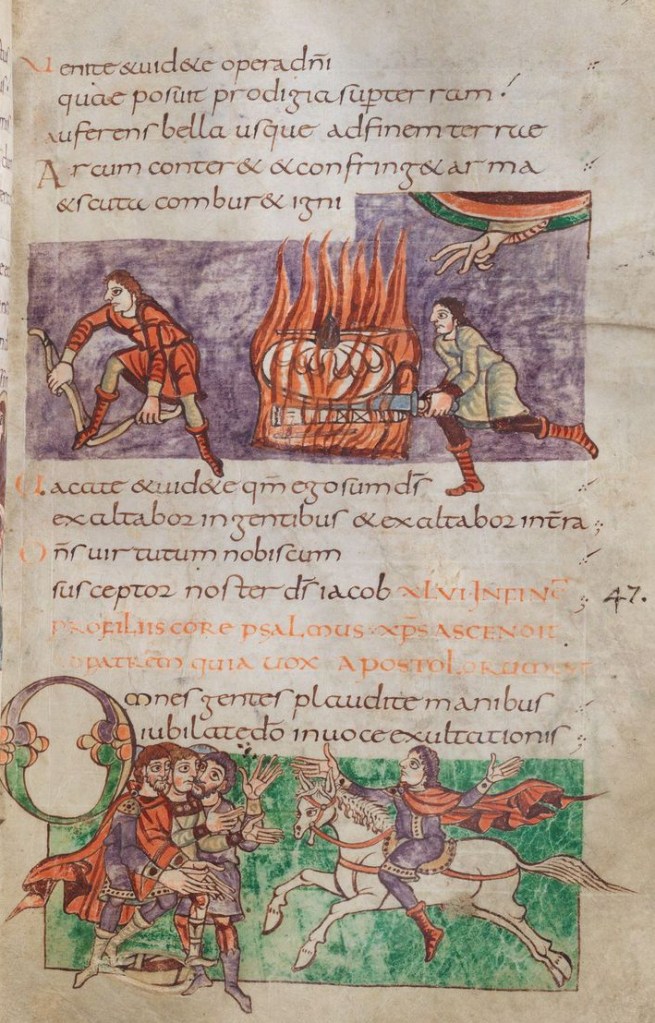 Uenite &uid&e opera dn̄i
quae posuit prodigia sup terram
auferens bella usque ad finem terrae
Arcum conter& &confring& arma
&scuta combur& igni
Uacate &uid&e qm̄ ego sum ds̄
exaltabor in gentibus &exaltabor in tr̄a
Dn̄s uirtutum nobiscum
susceptor noster ds̄ iacob XLVI·IN FINĒ 47.
PRO FILIIS CORE PSALMUS XP̄S ASCENDIT
PATREM QUIA VOX APOSTOLORUM EST
Omnes gentes plaudite manibus
iubilate dō in uoce exultationis